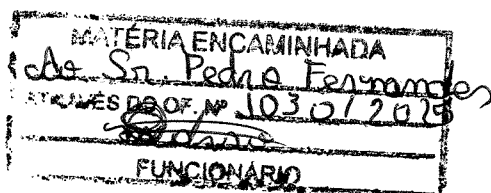 MATÉRIA ENCAMINHADA
Ao Sr. Pedro Fernandes
ATRAVÉS DO OF. Nº 1030/2025
FUNCIONÁRIO